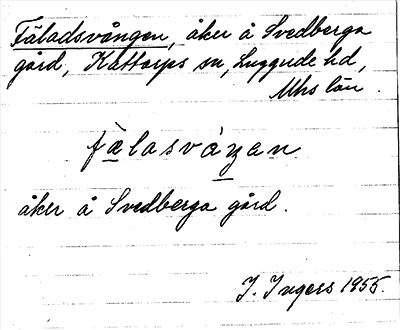 Fäladsvången, åker å Svedberga
gård, Kattarps sn, Luggude hd,
Mhs län.
fälasvåŋen
åker å Svedberga gård.
I. Ingers 1955.